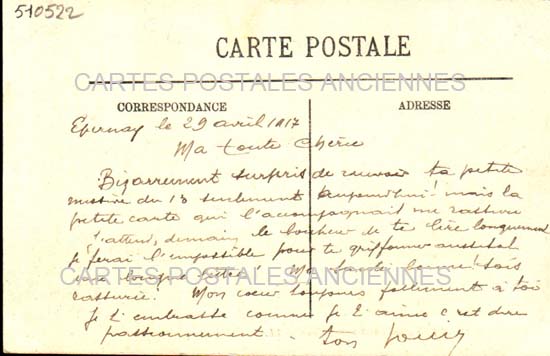 510522
CARTE POSTALE
CARTES POSTALES ANCIENNES
CORRESPONDANCE
ADRESSE
Epernay le 29 avril 1917
Ma toute Chérie
Bizarrement surpris de recevoir ta petite
missive du 13 seulement aujourd'hui! mais la
petite carte qui l'accompagnait me rassure
J'attend, demain, le bonheur de te lire longuement
je ferai l'impossible pour te griffonner aussitot
une longue lettre!
CARTES POSTALES ANCIENNES
rassurée! Mon coeur toujours follement à toi
Je t'embrasse comme je t'aime c'est dire
passionnément. ton